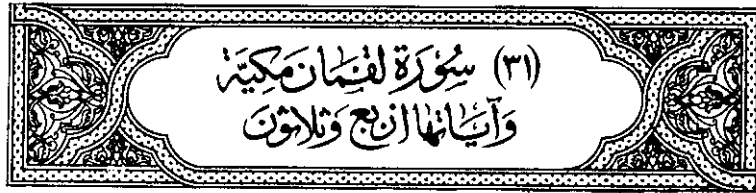 (٣١) سُورَة لقمَان مَكيَّة
وَآيَاتها اربَع وَثلاثونَ